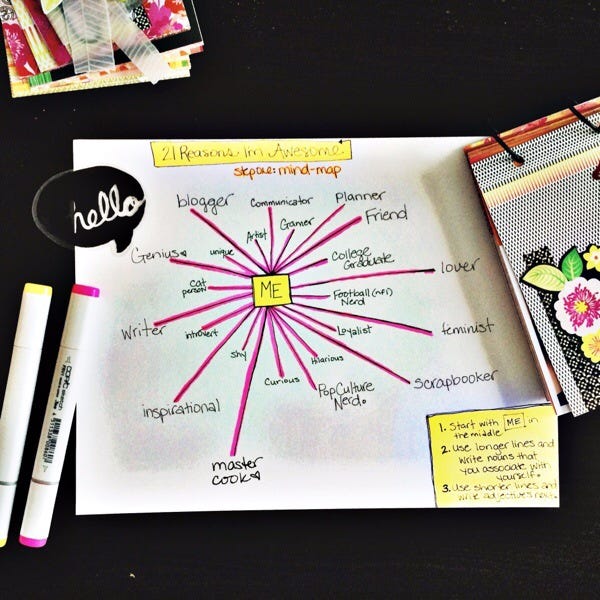 21 Reasons I'm Awesome
step one: mind-map
hello
blogger
Communicator
Planner
Friend
Artist
Gamer
unique
Genius
College
Graduate
lover
Cat
person
ME
Football (nfl)
Nerd
writer
introvert
Loyalist
feminist
shy
Hilarious
Curious
PopCulture
Nerd.
Scrapbooker
inspirational
master
cook
1. Start with ME in
the middle
2. Use longer lines and
write nouns that
you associate with
yourself.
3. Use shorter lines and
write adjectives